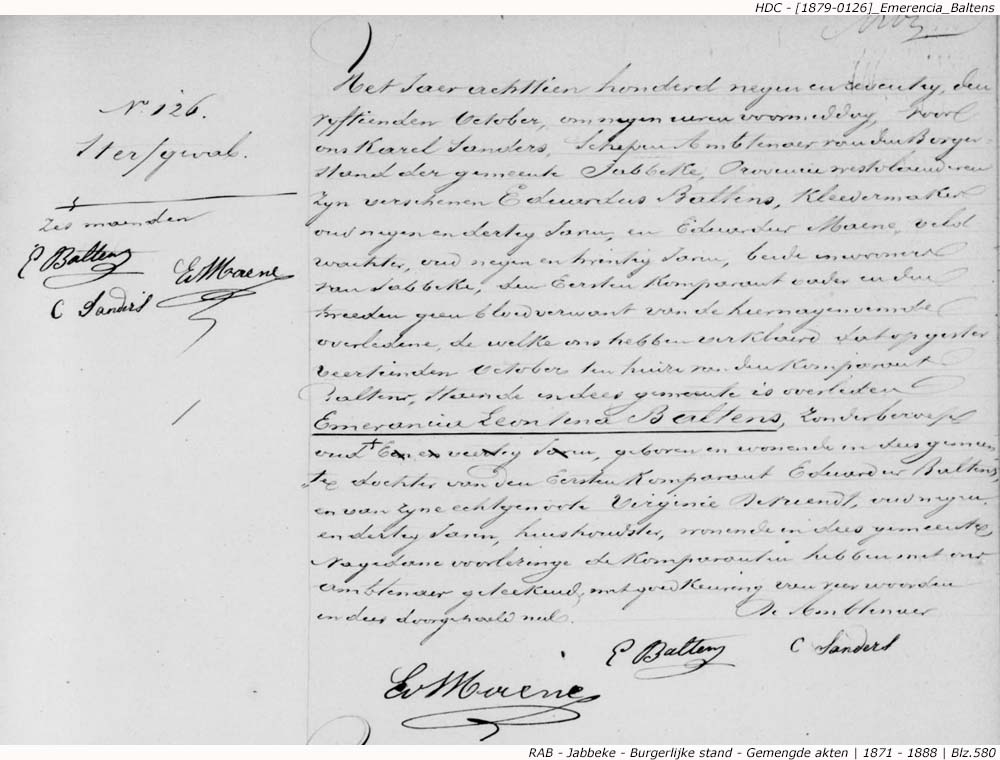 HDC - [1879-0126]_Emerencia_Baltens
N.º 126.
Sterfgeval.
Zes maanden
E Baltens
Ed Maene
C Sanders
Het Jaer achttien honderd negen en zeventig, den
vyftienden October, om negen uren voormiddag, voor
ons Karel Sanders, Schepen Amblenaer van den Burger-
stand der gemeente Jabbeke, Provincie westvlaanderen
zyn verschenen Eduardus Baltens, Kleedermaker
oud negen en dertig Jaren, en Eduardus Maene, veld
wachter, oud negen en twintig Jaren, beide inwooners
van Jabbeke, den Eersten Komparant vader en den
tweeden geen bloedverwant van de hiernagenoemde
overledene, de welke ons hebben verklaerd dat op gister
veertienden October ten huize van den Komparant
Baltens, staende in dees gemeente is overleden
Emerancia Leontena Baltens, zonder beroep
oud + Een en veertig Jaren, geboren en wonende in dees gemeen-
te dochter van den Eersten Komparant Eduardus Baltens,
en van zyne echtgenoote Virginie Deruendt, oud negen
en dertig Jaren, huishoudster, wonende in dees gemeente
Nagedane voorlezinge de Komparanten hebben met ons
Amblenaer geteekend, met goedkeuring van vier woorden
in dees doorgehaeld nul.
De Amblenaer
E Baltens
C Sanders
Ed Maene
RAB - Jabbeke - Burgerlijke stand - Gemengde akten | 1871 - 1888 | Blz.580